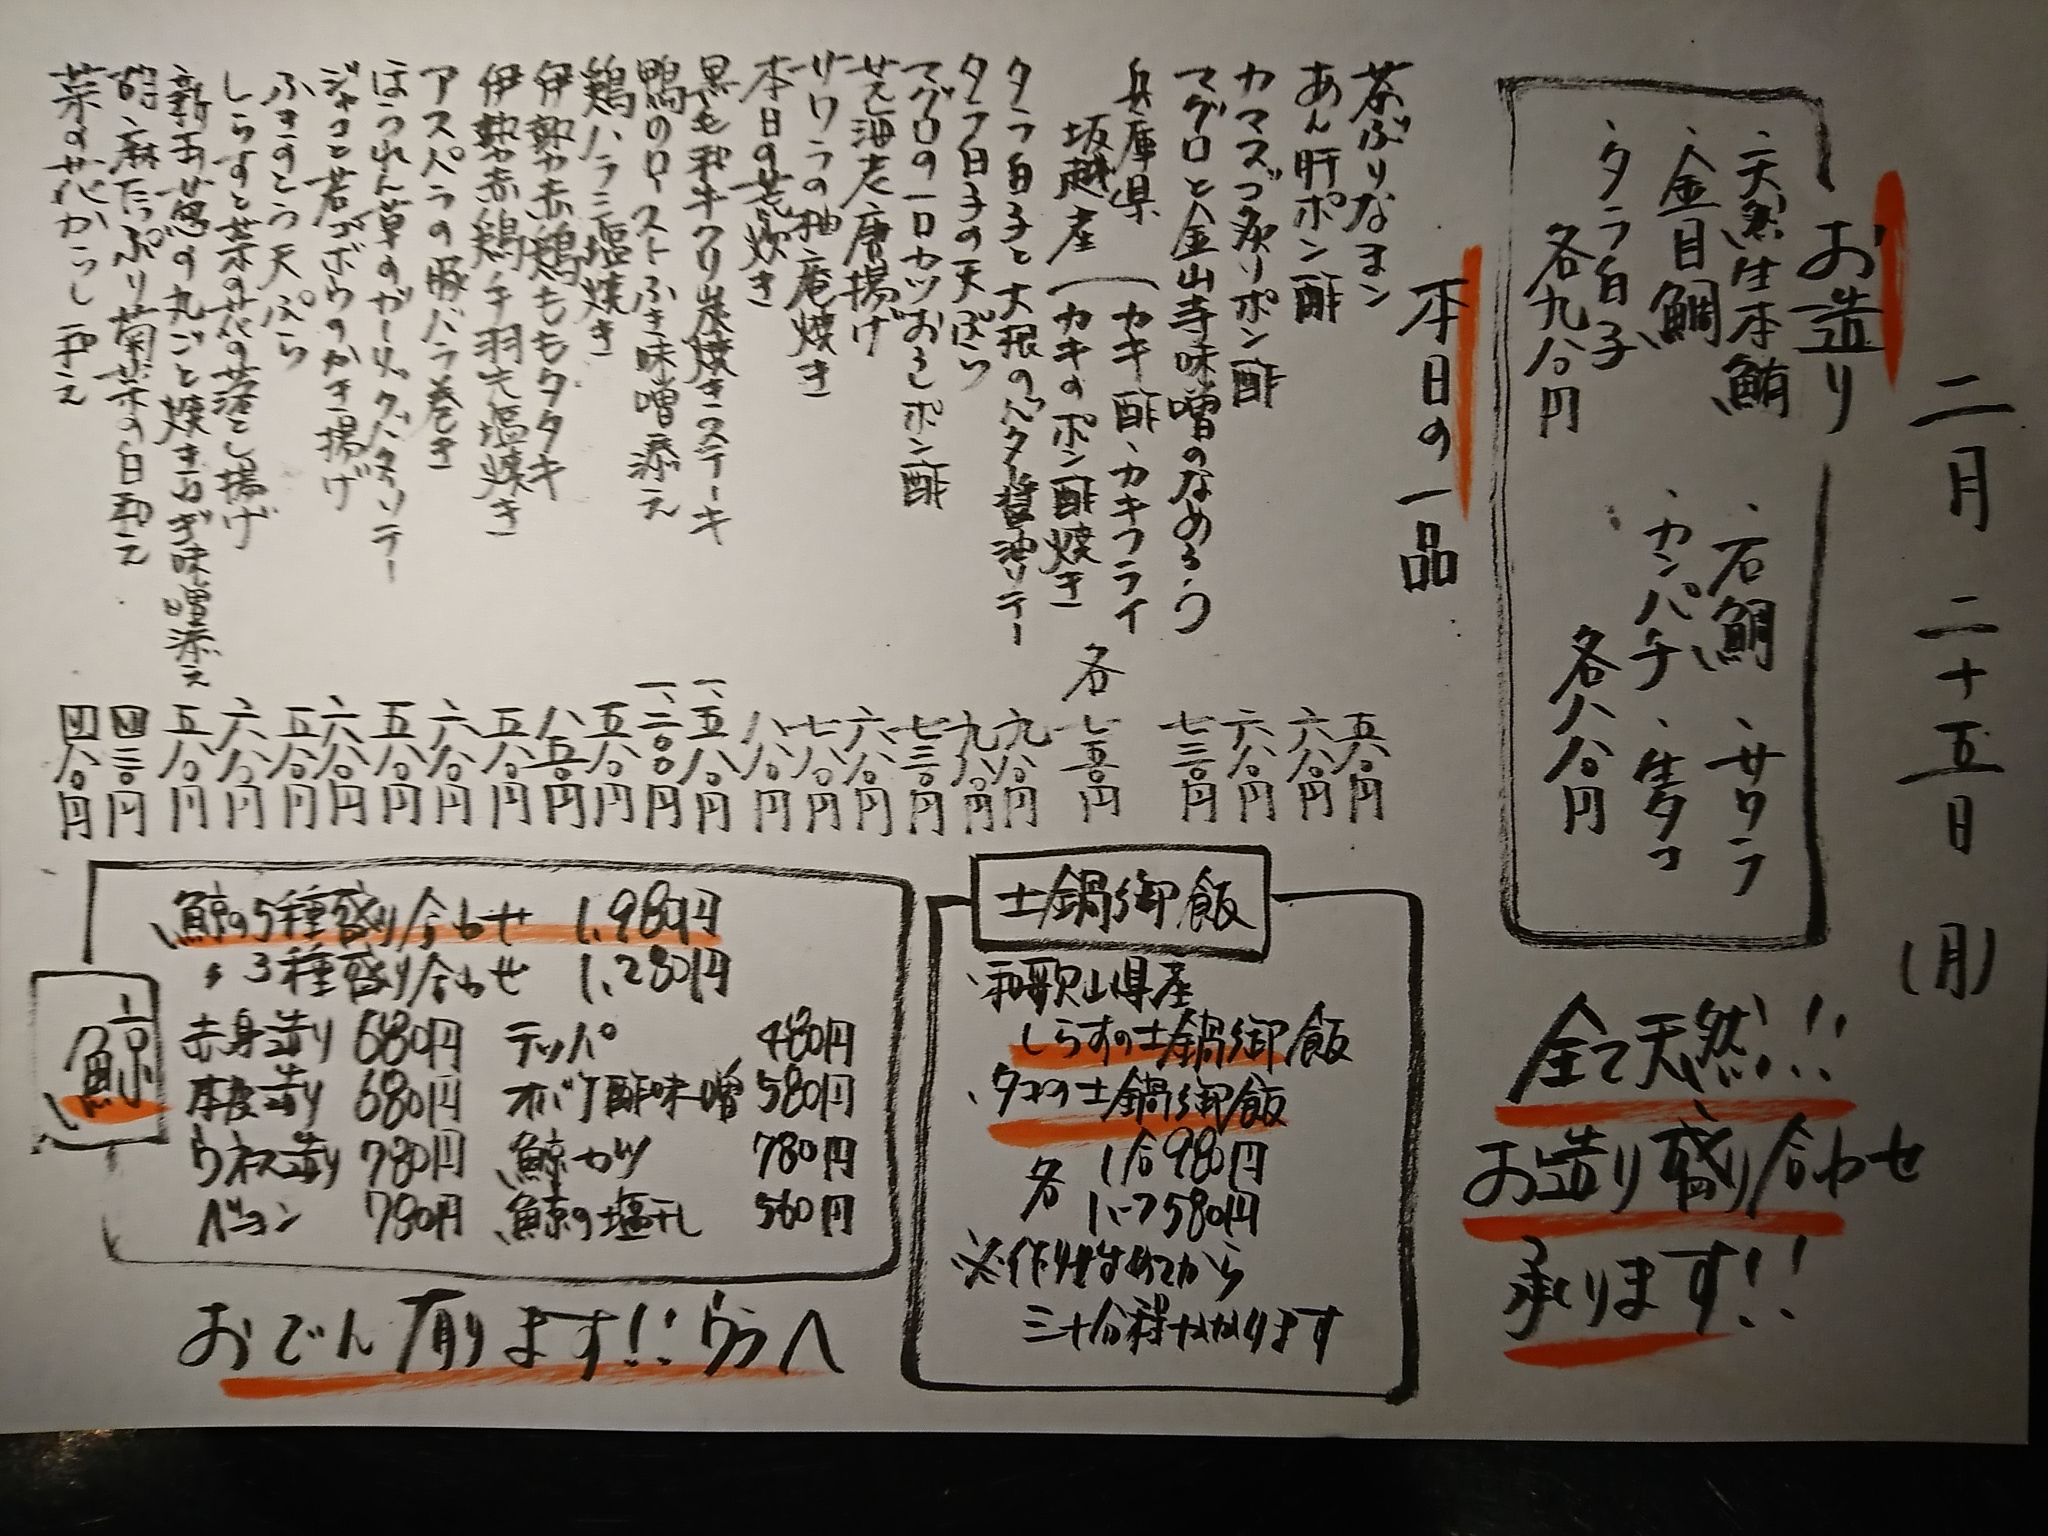 二月二十五日(月)
お造り
、天然生本鮪
、金目鯛
、タラ白子
各九八〇円
、石鯛
、サワラ
、カンパチ
、生タコ
各八八〇円
全て天然!!
お造り盛り合わせ
承ります!!
本日の一品
茶ぶりなまこ 五八〇円
あん肝ポン酢 六八〇円
カマスゴ炙りポン酢 六八〇円
マグロと金山寺味噌のなめろう 七三〇円
兵庫県
坂越産
カキ酢、カキフライ
カキのポン酢焼き
各七五〇円
タラ白子と大根のバター醤油ソテー 九八〇円
タラ白子の天ぷら 九八〇円
マグロの一口カツおろしポン酢 七三〇円
芝海老唐揚げ 六八〇円
サワラの柚庵焼き 七八〇円
本日の荒炊き 八八〇円
黒毛和牛クリ炭焼きステーキ 一、五八〇円
鴨のローストふき味噌添え 一、二〇〇円
鶏ハラミ塩焼き 五八〇円
伊勢赤鶏ももタタキ 八五〇円
伊勢赤鶏手羽先塩焼き 五八〇円
アスパラの豚バラ巻き 六八〇円
ほうれん草のガーリックバターソテー 五八〇円
ジャコと若ゴボウのかき揚げ 六八〇円
ふきのとう天ぷら 五八〇円
しらすと菜の花の落とし揚げ 六八〇円
新玉葱の丸ごと焼きねぎ味噌添え 五八〇円
胡麻たっぷり菊菜の白和え 四三〇円
菜の花からし和え 四八〇円
土鍋御飯
、和歌山県産
しらすの土鍋御飯
、タコの土鍋御飯
各 1合980円
1/2 580円
※作り始めてから
三十分程かかります
鯨
鯨の5種盛り合わせ 1,980円
〃3種盛り合わせ 1,280円
赤身造り 680円 テッパ 480円
本皮造り 680円 オバケ酢味噌 580円
ウネス造り 780円 鯨カツ 780円
ベーコン 780円 鯨の塩干し 560円
おでん有ります!!ウラへ